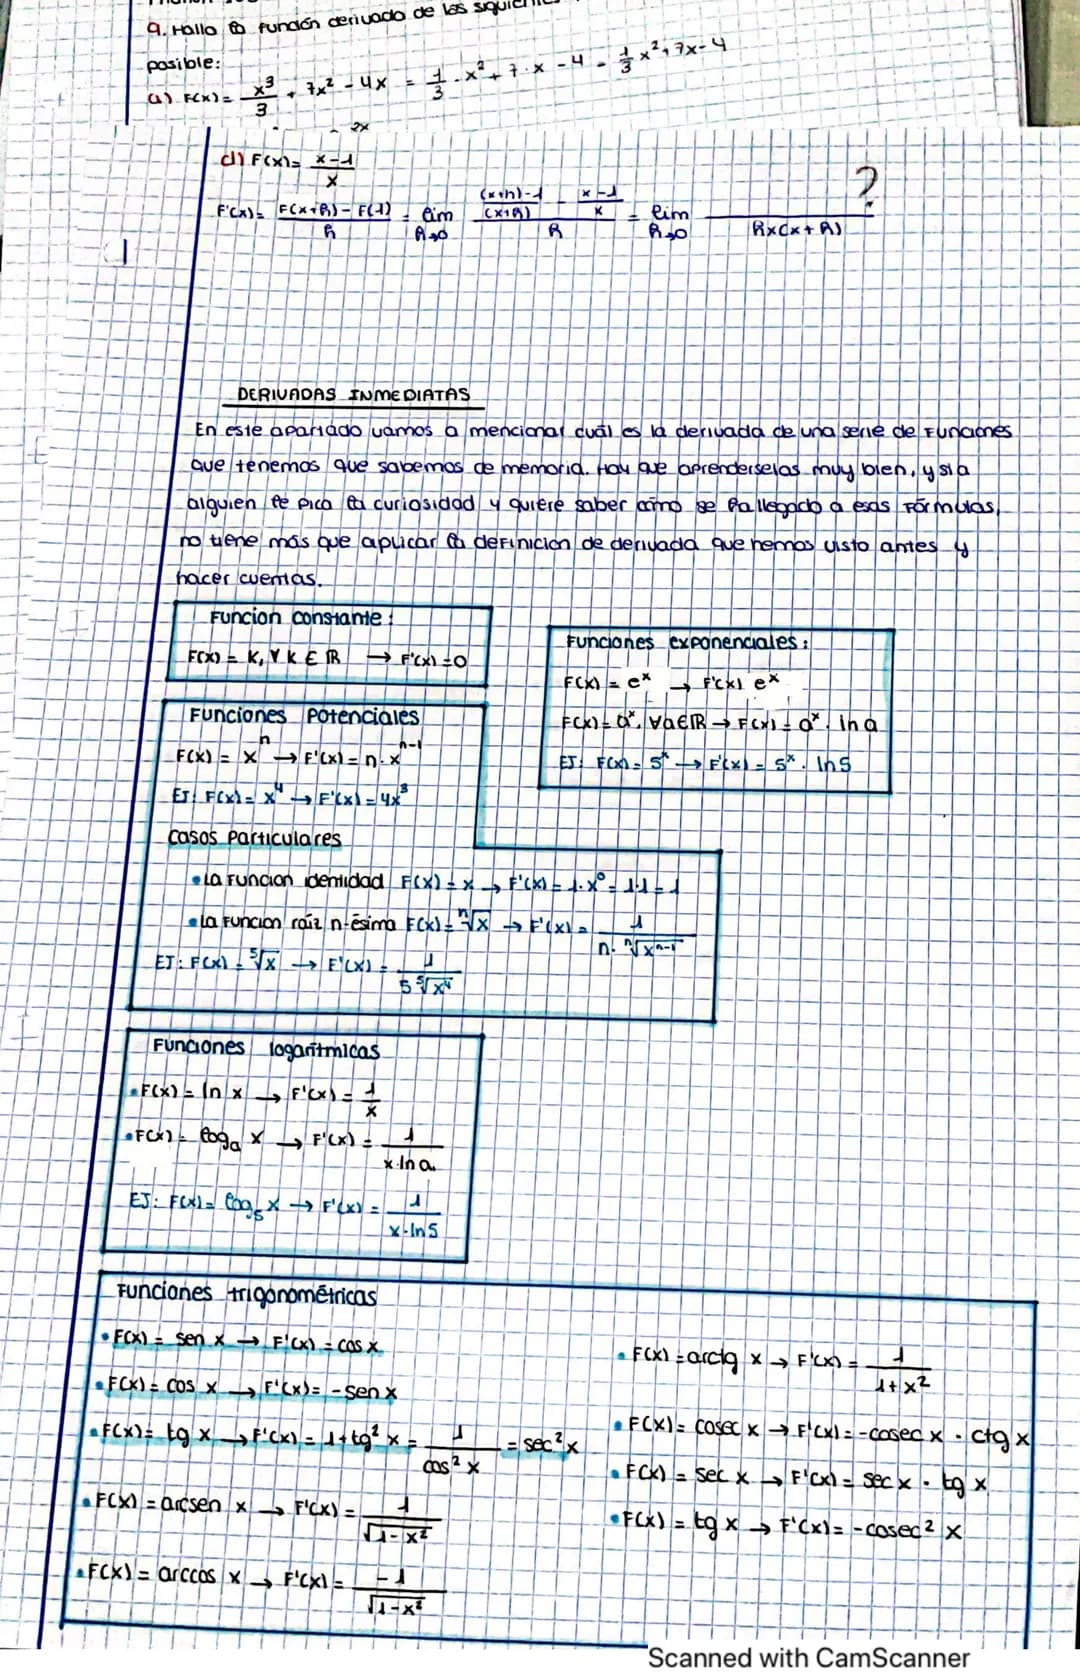 9. Halla la función derivada de las
posible:
a) F(x) = x³/3 + 7x² - 4x = 1/3 · x² + 7 · x - 4 = 1/3 x² + 7x - 4
2x
d) F(x) = x-1/x
F'(x) = F(x+h) - F(1)/h = lim h→0 (x+h)-1/(x+h) - x-1/x / h = lim h→0 ?/hx(x+h)
DERIVADAS INMEDIATAS
En este apartado vamos a mencionar cuál es la derivada de una serie de funciones
que tenemos que sabemos de memoria. Hay que aprenderselas muy bien, y si a
alguien te pica la curiosidad y quiere saber cómo se ha llegado a esas Fórmulas,
no tiene más que aplicar la definicion de derivada que hemos visto antes y
hacer cuentas.
Funcion constante:
F(x) = K, ∀ K ∈ ℝ → F'(x) = 0
Funciones exponenciales:
F(x) = eˣ → F'(x) eˣ
F(x) = aˣ, ∀a∈ℝ → F(x) = aˣ · ln a
EJ: F(x) = 5ˣ → F'(x) = 5ˣ · ln 5
Funciones Potenciales
F(x) = xⁿ → F'(x) = n · xⁿ⁻¹
EJ: F(x) = x⁴ → F'(x) = 4x³
Casos Particulares
• La Funcion identidad F(x) = x → F'(x) = 1·x⁰ = 1·1 = 1
• la Funcion raíz n-ésima F(x) = ⁿ√x → F'(x) = 1/n · ⁿ√xⁿ⁻¹
EJ: F(x) = ⁵√x → F'(x) = 1/5 ⁵√x⁴
Funciones logarítmicas
• F(x) = ln x → F'(x) = 1/x
• F(x) = logₐ x → F'(x) = 1/x·ln a
EJ: F(x) = log₅ x → F'(x) = 1/x·ln 5
Funciones trigonométricas
• F(x) = sen x → F'(x) = cos x
• F(x) = cos x → F'(x) = -sen x
• F(x) = tg x → F'(x) = 1 + tg² x = 1/cos² x = sec² x
• F(x) = arcsen x → F'(x) = 1/√1-x²
• F(x) = arccos x → F'(x) = -1/√1-x²
• F(x) = arctg x → F'(x) = 1/1+x²
• F(x) = cosec x → F'(x) = -cosec x · ctg x
• F(x) = sec x → F'(x) = sec x · tg x
• F(x) = tg x → F'(x) = -cosec² x
Scanned with CamScanner